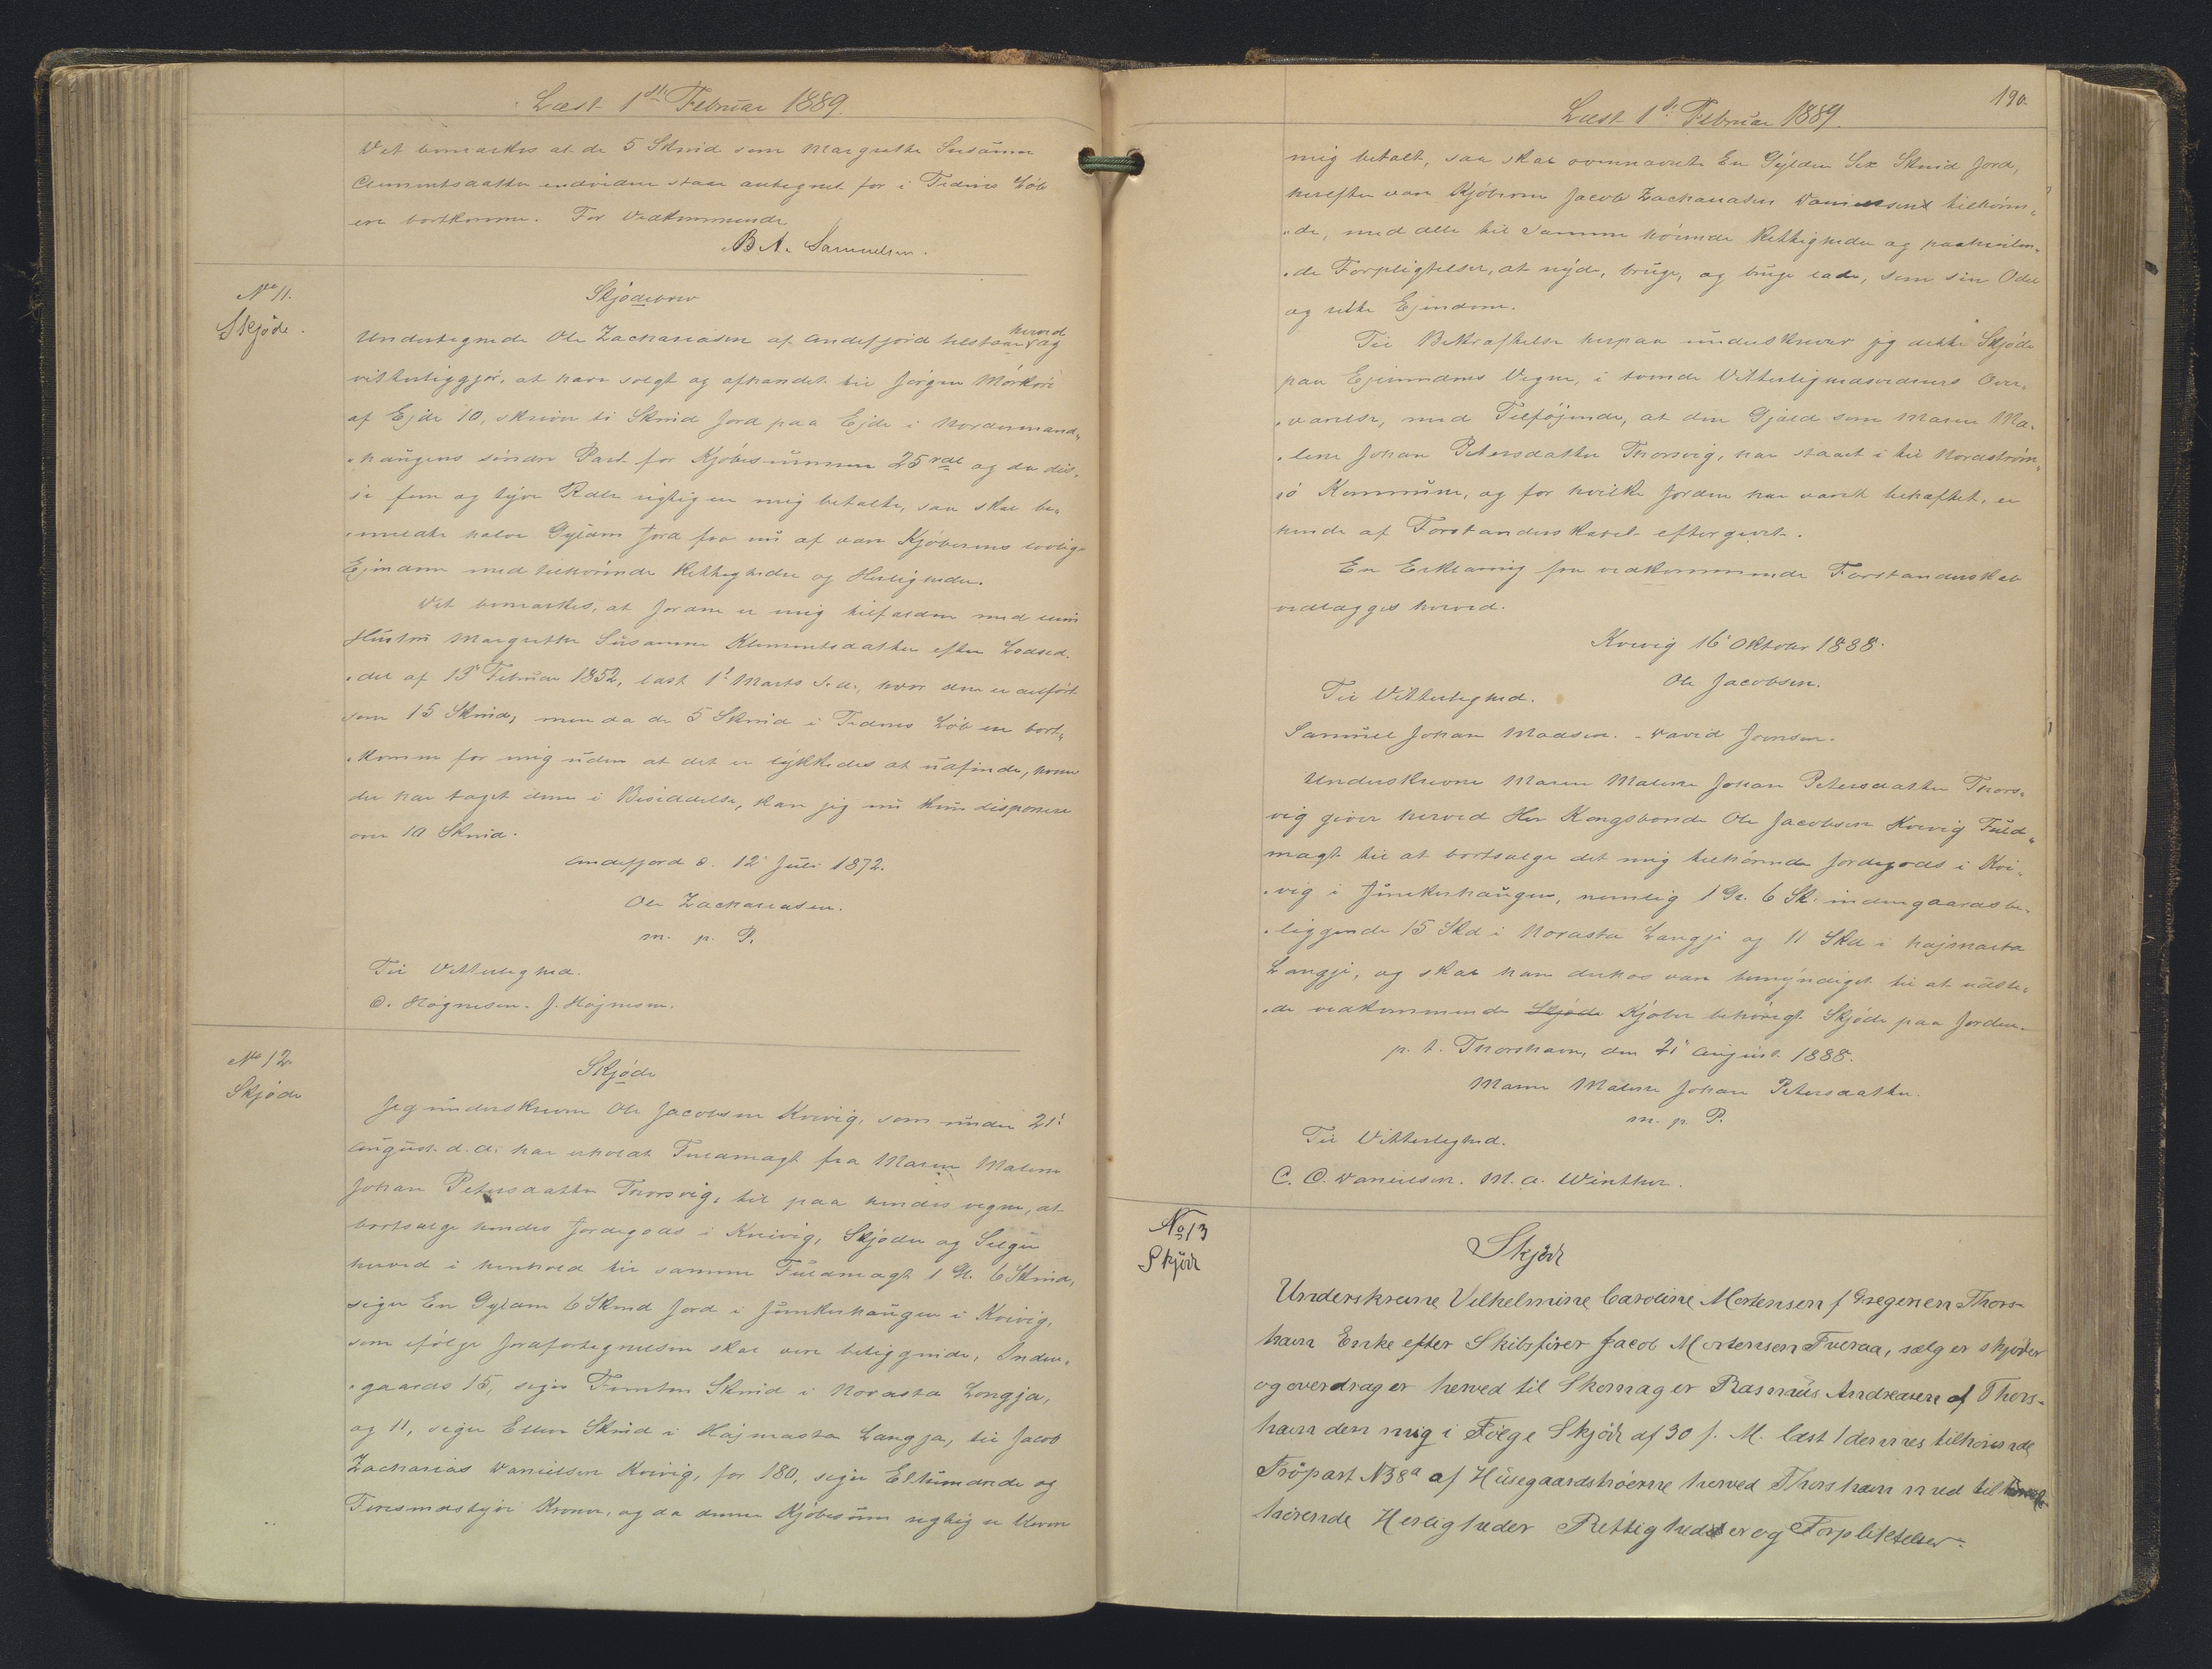 Læst 1ste Februar 1889.
Det bemærkes at de 5 Skind som Margrethe Susanne
Clementsdatter endvidere staar antegnet for i Tidens Löb
ere bortkomne. For Vedkommende
B. A. Samuelsen.
No 11.
Skjöde.
Skjödebrev
Undertegnede Ole Zachariasen af Andefjord tilstaar herved og
vitterliggjör, at have solgt og afhændet til Jörgen Mörköre
af Ejde 10, skriver ti Skind Jord paa Ejde i Nordermand„
„haugens söndre Part for Kjöbesummen 25 rdl og da dis„
se fem og tyve Rdlr rigtig er mig betalte, saa skal be„
„meldte halve Gylden Jord fra nu af være Kjöberens lovlige
Ejendom med tilhörende Rettigheder og Herligheder.
Det bemærkes, at Jorden er mig tilfalden med min
Hustru Margrethe Susanne Klementsdatter efter Lodsed„
„del af 13 Februar 1852, læst 1' Marts s. A., hvor den er anfört
som 15 Skind, men da de 5 Skind i Tidens Löb ere bort„
„komne for mig uden at det er lykkedes at udfinde, hvem
der har taget dem i Besiddelse, kan jeg nu kun disponere
over 10 Skind.
Andefjord d. 12' Juli 1872.
Ole Zachariasen.
m. p. P.
Til Vitterlighed.
O. Högnesen. J. Højnesen.
No 12
Skjöde
Skjöde
Jeg underskrevne Ole Jacobsen Kvivig, som under 21'
August d. A. har erholdt Fuldmagt fra Maren Malene
Johan Petersdatter Thorsvig, til paa hendes vegne, at
bortsælge hendes Jordegods i Kvivig, Skjöder og Sælger
herved i henhold til samme Fuldmagt 1 Gl. 6 Skind,
siger En Gylden 6 Skind Jord i Junkerhaugen i Kvivig,
som ifölge Jordfortegnelsen skal være beliggende, Inden„
„gaards 15, siger Femten Skind i Norasta Longja,
og 11, siger Elleve Skind i Hajmasta Langja, til Jacob
Zacharias Danielsen Kvivig, for 180, siger Ethundrede og
Firesindstyve Kroner, og da denne Kjöbesum rigtig er bleven
190.
Læst 1ste Februar 1889.
mig betalt, saa skal ovennævnte En Gylden Sex Skind Jord,
herefter være Kjöberen Jacob Zachariasen Danielsen tilhören„
„de, med alle til samme hörende Rettigheder og paahvilen„
„de Forpligtelser, at nyde, bruge, og bruge lade, som sin Odel
og rette Ejendom.
Til Bekræftelse herpaa underskriver jeg dette Skjöde
paa Ejerindens Vegne, i tvende Vitterlighedsvidners Over„
„værelse, med Tilföjende, at den Gjæld som Maren Ma„
„lene Johan Petersdatter Thorsvig, har staaet i til Nordström„
„ö Kommune, og for hvilke Jorden har været behæftet, er
hende af Forstanderskabet eftergivet.
En Erklæring fra vedkommende Forstanderskab
vedlægges herved.
Kvivig 16' Oktober 1888.
Ole Jacobsen.
Til Vitterlighed.
Samuel Johan Madsen. David Joensen.
Underskrevne Maren Malene Johan Petersdatter Thors„
vig giver herved Hr. Kongsbonde Ole Jacobsen Kvivig Fuld„
magt til at bortsælge det mig tilhörende Jordegods i Kvi„
„vig i Junkerhaugen, nemlig 1 Gl. 6 Sk. indengaards be„
„liggende 15 Skd i Norasta Langji og 11 Skd i hajmasta
Langji, og skal han derhos være bemyndiget til at udste„
„de vedkommende Skjöde Kjöber behörigt Skjöde paa Jorden.
p. t. Thorshavn, den 21' August 1888.
Maren Malene Johan Petersdatter.
m. p. P.
Til Vitterlighed.
C. O. Danielsen. M. A. Winther.
No 13
Skjöde
Skjöde
Underskrevne Vilhelmine Caroline Mortensen f. Gregersen Thors-
havn Enke efter Skibsförer Jacob Mortensen Tveraa, sælger skjöder
og overdrager herved til Skomager Rasmus Andreasen af Thors-
havn den mig i Fölge Skjöde af 30 f. M. læst 1 dennes tilhörende
Tröpart N 38a af Husegaardströerne herved Thorshavn med til
hörende Herligheder Rettigheder og Forpliktelser.